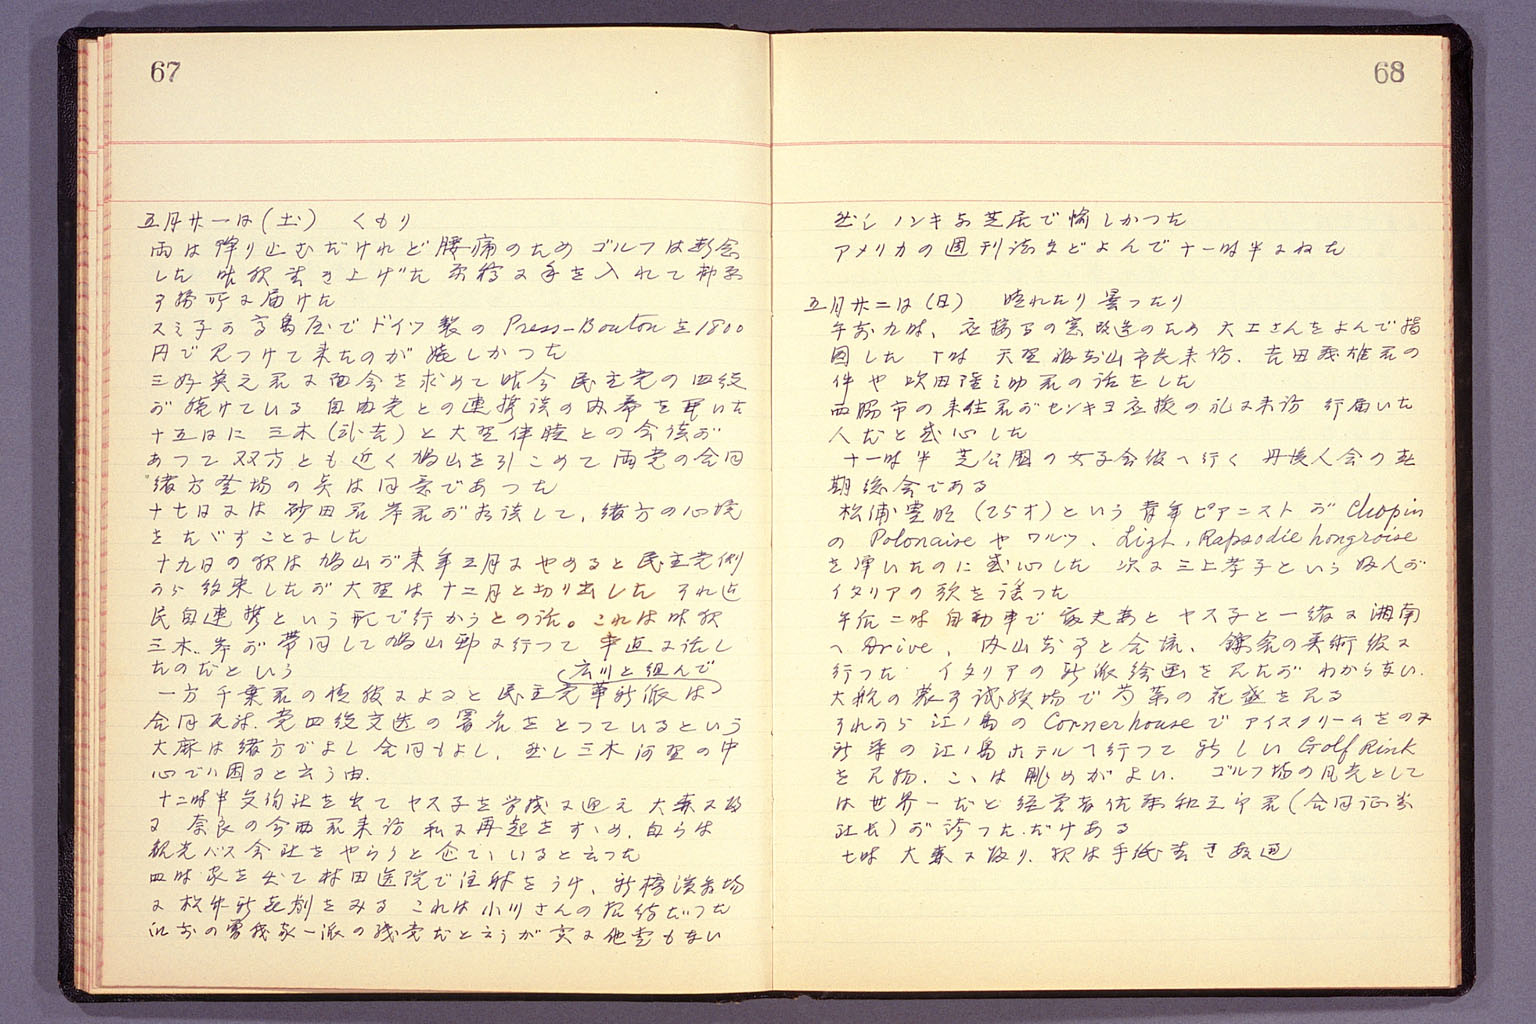 67
五月廿一日(土) くもり
雨は降り止むだけれど腰痛のためゴルフは断念
した 昨夜書き上げた原稿に手を入れて
事務所に届けた
スミ子が高島屋でドイツ製の Press-Bouton を1800
円で見つけて来たのが嬉しかった
三好英之君に面会を求めて昨今民主党の四役
が続けている自由党との連携談の内幕を聞いた
十五日に三木(武吉)と大野伴睦との会談が
あつて双方とも近く鳩山を引こめて両党の合同
緒方登場の点は同意であつた
十七日には砂田君岸君が相談して、緒方の心境
をたゞすことにした
十九日の夜は鳩山が来年三月にやめると民主党側
から約束したが大野は十二月と切り出した それ迄
民自連携という形で行かうとの話。これは昨夜
三木、岸が帯同して鳩山邸に行つて率直に話し
たのだという
広川と組んで
一方千葉君の情報によると民主党革新派は
合同反対、党四役交迭の署名をとつているという
大麻は緒方でよし合同もよし、然し三木河野の中
心では困ると云う由.
十二時半交詢社を出てヤス子を学校に迎え大森に帰
る 奈良の今西君来訪 私に再起をすゝめ、自らは
観光バス会社をやらうと企てゝいると云つた
四時家を出て林田医院で注射をうけ、新橋演舞場
に松竹新喜劇をみる これは小川さんの招待だつた
以前の曽我家一派の残党だと云うが実に他愛もない
68
然しノンキな芝居で愉しかつた
アメリカの週刊誌などよんで十一時半にねた
五月廿二日(日) 晴れたり曇つたり
午前九時、応接間の窓改造のため大工さんをよんで指
図した 十時 天野福知山市長来訪、吉田義雄君の
件や吹田隆之助君の話をした
西脇市の来住君がセンキヨ応援の礼に来訪 行届いた
人だと感心した
十一時半 芝公園の女子会館へ行く 丹後人会の定
期総会である
松浦豊明(25才)という青年ピアニストが Chopin
の Polonaise やワルツ、Lizt, Rapsodie hongroise
を弾いたのに感心した 次に三上孝子という婦人が
イタリアの歌を謡つた
午后二時自動車で夫妻とヤス子と一緒に湘南
へ Drive, 内山知事と会談、鎌倉の美術館に
行つた イタリアの新派絵画を見たがわからない.
大船の農事試験場で芍薬の花盛を見る
それから江ノ島の Cornerhouse でアイスクリームをのみ
新築の江ノ島ホテルへ行つて新しい Golf Rink
を見物. こゝは眺めがよい. ゴルフ場の風光として
は世界一だと経営者佐藤和三郎君(合同証券
社長)が誇つただけある
七時 大森に帰り、夜は手紙書き